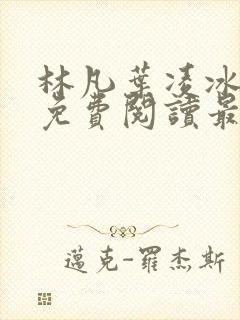 林凡葉凌冰
免費閱讀最
邁克-羅杰斯